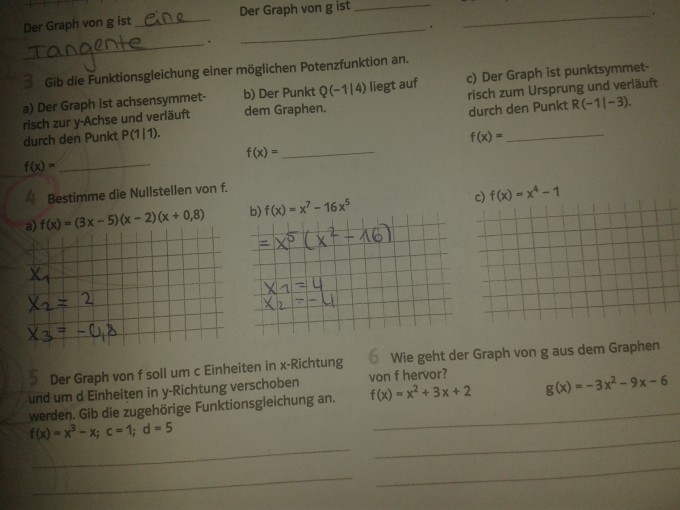 Der Graph von g ist eine
Tangente.
Der Graph von g ist
.
.
3 Gib die Funktionsgleichung einer möglichen Potenzfunktion an.
a) Der Graph ist achsensymmet-
risch zur y-Achse und verläuft
durch den Punkt P(1|1).
f(x) =
b) Der Punkt Q(−1|4) liegt auf
dem Graphen.
f(x) =
c) Der Graph ist punktsymmet-
risch zum Ursprung und verläuft
durch den Punkt R(−1|−3).
f(x) =
4 Bestimme die Nullstellen von f.
a) f(x) = (3x − 5)(x − 2)(x + 0,8)
x₁
x₂ = 2
x₃ = −0,8
b) f(x) = x⁷ − 16x⁵
= x⁵ (x² − 16)
x₁ = 4
x₂ = −4
c) f(x) = x⁴ − 1
5 Der Graph von f soll um c Einheiten in x-Richtung
und um d Einheiten in y-Richtung verschoben
werden. Gib die zugehörige Funktionsgleichung an.
f(x) = x³ − x; c = 1; d = 5
6 Wie geht der Graph von g aus dem Graphen
von f hervor?
f(x) = x² + 3x + 2 g(x) = −3x² − 9x − 6